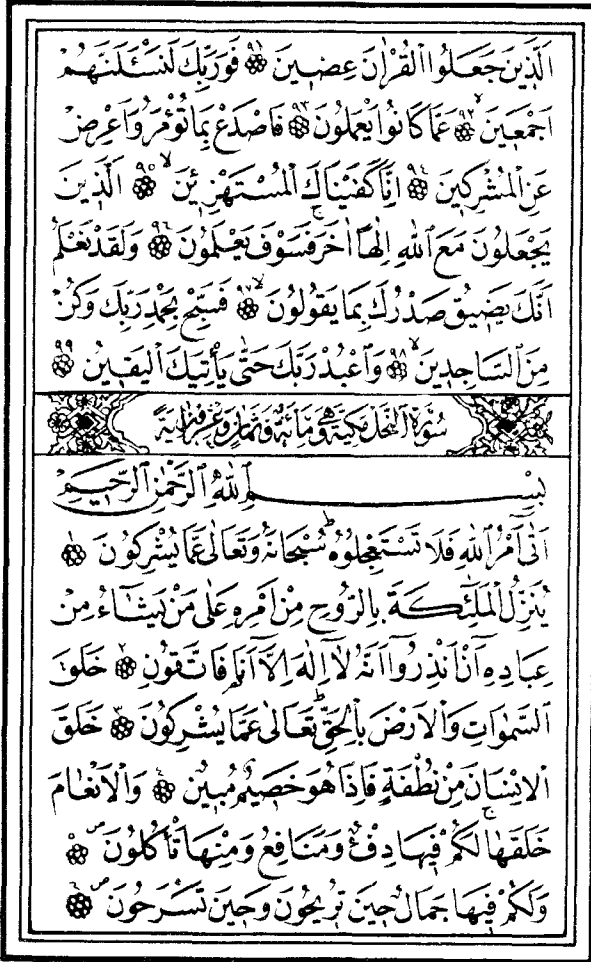 الَّذِينَ جَعَلُوا الْقُرْاٰنَ عِضِينَ ﴿٩١﴾ فَوَرَبِّكَ لَنَسْـَٔلَنَّهُمْ
اَجْمَعِينَۙ ﴿٩٢﴾ عَمَّا كَانُوا يَعْمَلُونَ ﴿٩٣﴾ فَاصْدَعْ بِمَا تُؤْمَرُ وَاَعْرِضْ
عَنِ الْمُشْرِكِينَ ﴿٩٤﴾ اِنَّا كَفَيْنَاكَ الْمُسْتَهْزِئِينَۙ ﴿٩٥﴾ الَّذِينَ
يَجْعَلُونَ مَعَ اللّٰهِ اِلٰهًا اٰخَرَۚ فَسَوْفَ يَعْلَمُونَ ﴿٩٦﴾ وَلَقَدْ نَعْلَمُ
اَنَّكَ يَضِيقُ صَدْرُكَ بِمَا يَقُولُونَۙ ﴿٩٧﴾ فَسَبِّحْ بِحَمْدِ رَبِّكَ وَكُنْ
مِنَ السَّاجِدِينَۙ ﴿٩٨﴾ وَاعْبُدْ رَبَّكَ حَتّٰى يَأْتِيَكَ الْيَقِينُ ﴿٩٩﴾
سُورَةُ النَّحْلِ مَكِّيَّةٌ وَهِيَ مِائَةٌ وَثَمَانٍ وَعِشْرُونَ اٰيَةً
بِسْمِ اللّٰهِ الرَّحْمٰنِ الرَّحِيمِ
اَتٰٓى اَمْرُ اللّٰهِ فَلَا تَسْتَعْجِلُوهُۜ سُبْحَانَهُ وَتَعَالٰى عَمَّا يُشْرِكُونَ ﴿١﴾
يُنَزِّلُ الْمَلٰٓئِكَةَ بِالرُّوحِ مِنْ اَمْرِهِ عَلٰى مَنْ يَشَٓاءُ مِنْ
عِبَادِهِٓ اَنْ اَنْذِرُٓوا اَنَّهُ لَٓا اِلٰهَ اِلَّٓا اَنَا فَاتَّقُونِ ﴿٢﴾ خَلَقَ
السَّمٰوَاتِ وَالْاَرْضَ بِالْحَقِّۜ تَعَالٰى عَمَّا يُشْرِكُونَ ﴿٣﴾ خَلَقَ
الْاِنْسَانَ مِنْ نُطْفَةٍ فَاِذَا هُوَ خَصِيمٌ مُبِينٌ ﴿٤﴾ وَالْاَنْعَامَ
خَلَقَهَاۚ لَكُمْ فِيهَا دِفْءٌ وَمَنَافِعُ وَمِنْهَا تَأْكُلُونَۖ ﴿٥﴾
وَلَكُمْ فِيهَا جَمَالٌ حِينَ تُرِيحُونَ وَحِينَ تَسْرَحُونَۖ ﴿٦﴾